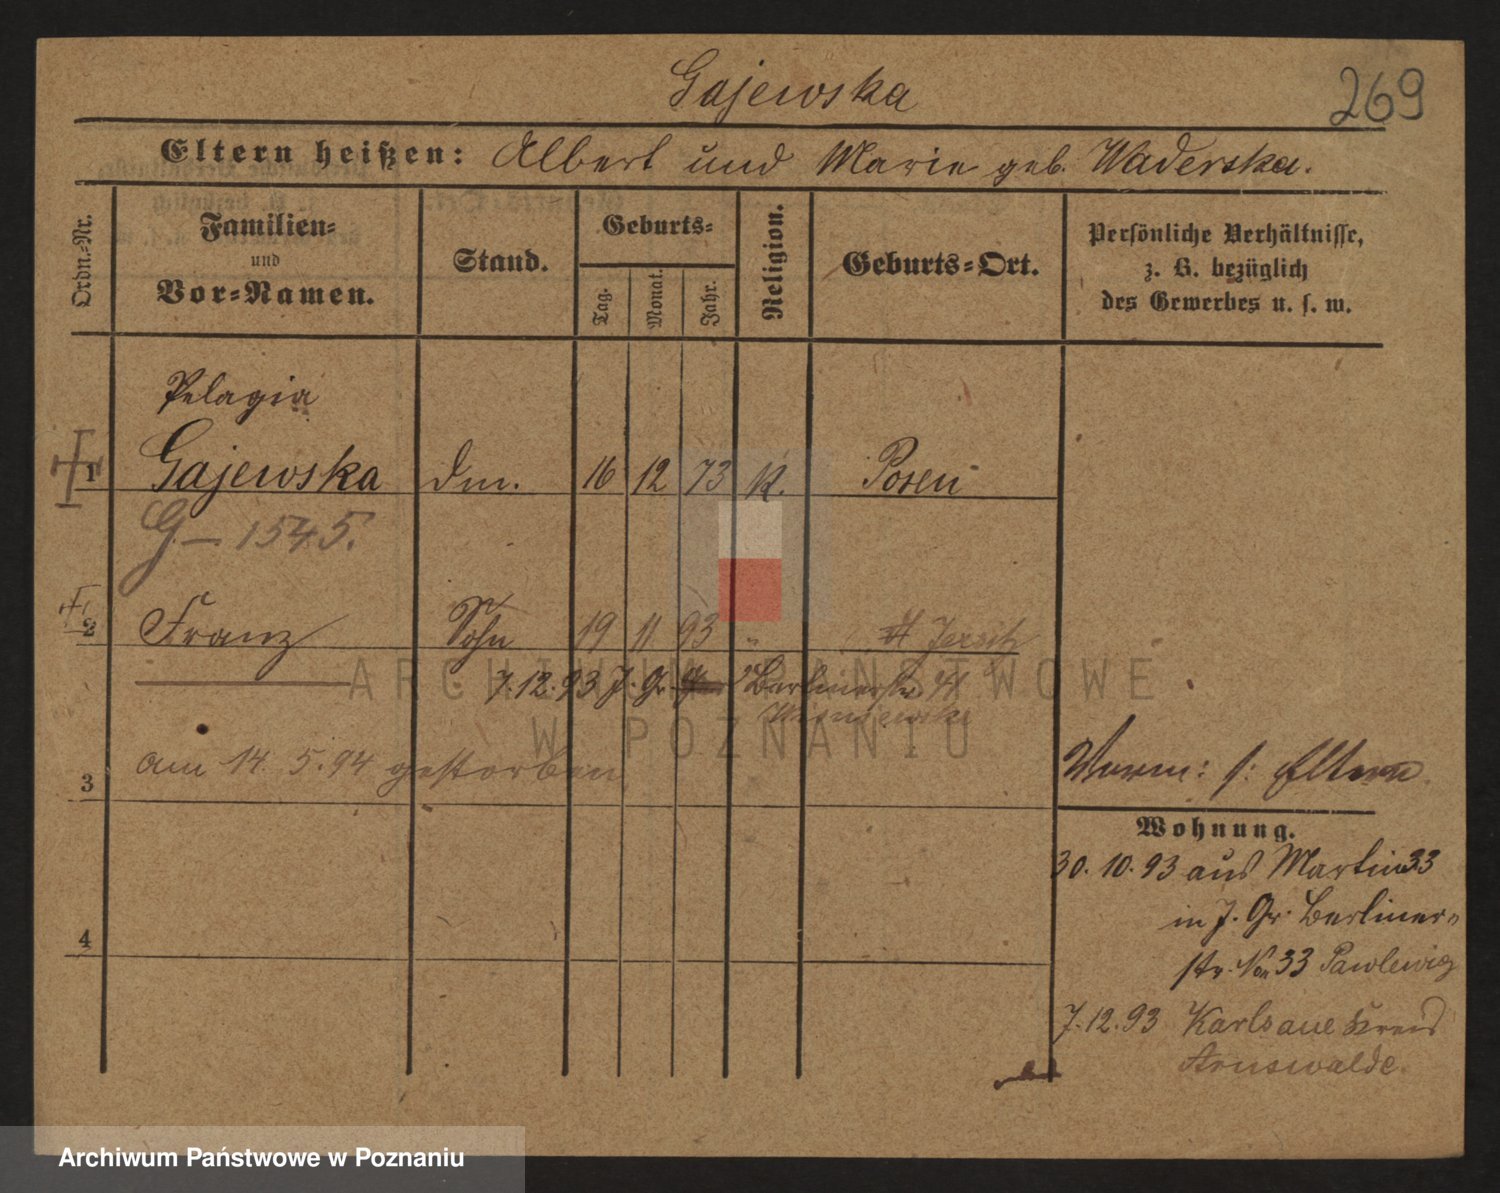 Gajewska
269
Eltern heißen: Albert und Marie geb. Waderska.
Ordn.-Nr.
Familien-
und
Vor-Namen.
Stand.
Geburts-
Tag.
Monat.
Jahr.
Religion.
Geburts-Ort.
Persönliche Verhältnisse,
z. B. bezüglich
des Gewerbes u. s. w.
Pelagia
1 Gajewska 16 12 73 K. Posen
G.-1545.
2 Franz Sohn 19 11 93 " Jersitz
7.12.93 J. Gr. Berlinerstr.
Wisniewski
am 14.5.94 gestorben
3
s: Eltern
Wohnung.
30.10.93 aus Martin 33
in J. Gr. Berliner-
str. No 33 Pawlewicz
4
7.12.93 Karlsaue Kreis
Arnswalde.
ARCHIWUM PAŃSTWOWE
W POZNANIU
Archiwum Państwowe w Poznaniu